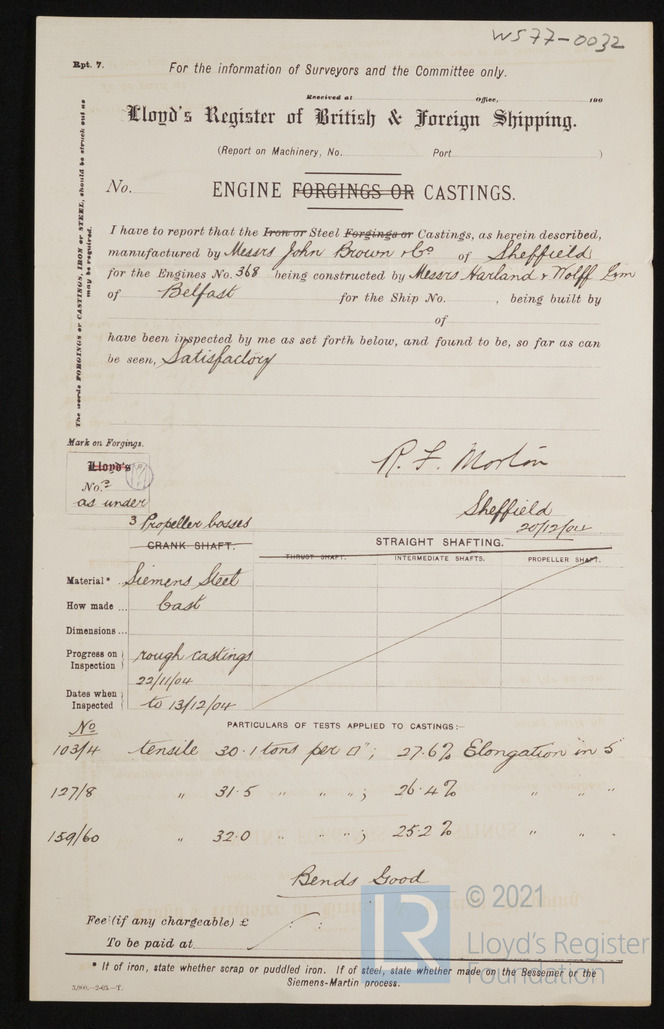 WS77-0032
Rpt. 7.
For the information of Surveyors and the Committee only.
Received at Office, 190
Lloyd's Register of British & Foreign Shipping.
(Report on Machinery, No. Port )
No. ENGINE FORGINGS OR CASTINGS.
The words FORGINGS or CASTINGS, IRON or STEEL, should be struck out as may be required.
I have to report that the Iron or Steel Forgings or Castings, as herein described,
manufactured by Messrs John Brown & Co of Sheffield
for the Engines No. 368 being constructed by Messrs Harland & Wolff Lim
of Belfast for the Ship No. , being built by
of
have been inspected by me as set forth below, and found to be, so far as can
be seen, Satisfactory
Mark on Forgings.
Lloyd's
No.s
as under
R. F. Morton
Sheffield
20/12/04
3 Propeller bosses
CRANK SHAFT. STRAIGHT SHAFTING.
THRUST SHAFT. INTERMEDIATE SHAFTS. PROPELLER SHAFT.
Material* Siemens Steel
How made ... Cast
Dimensions ...
Progress on Inspection rough castings
22/11/04
Dates when Inspected to 13/12/04
No PARTICULARS OF TESTS APPLIED TO CASTINGS:—
103/4 tensile 30.1 tons per □"; 27.6% Elongation in 5"
127/8 " 31.5 " " "; 26.4% " " "
159/60 " 32.0 " " "; 25.2% " " "
Bends Good
Fee (if any chargeable) £ : :
To be paid at
* If of iron, state whether scrap or puddled iron. If of steel, state whether made on the Bessemer or the
Siemens-Martin process.
3,000.—2-03.—T.
© 2021
LR
Lloyd's Register
Foundation